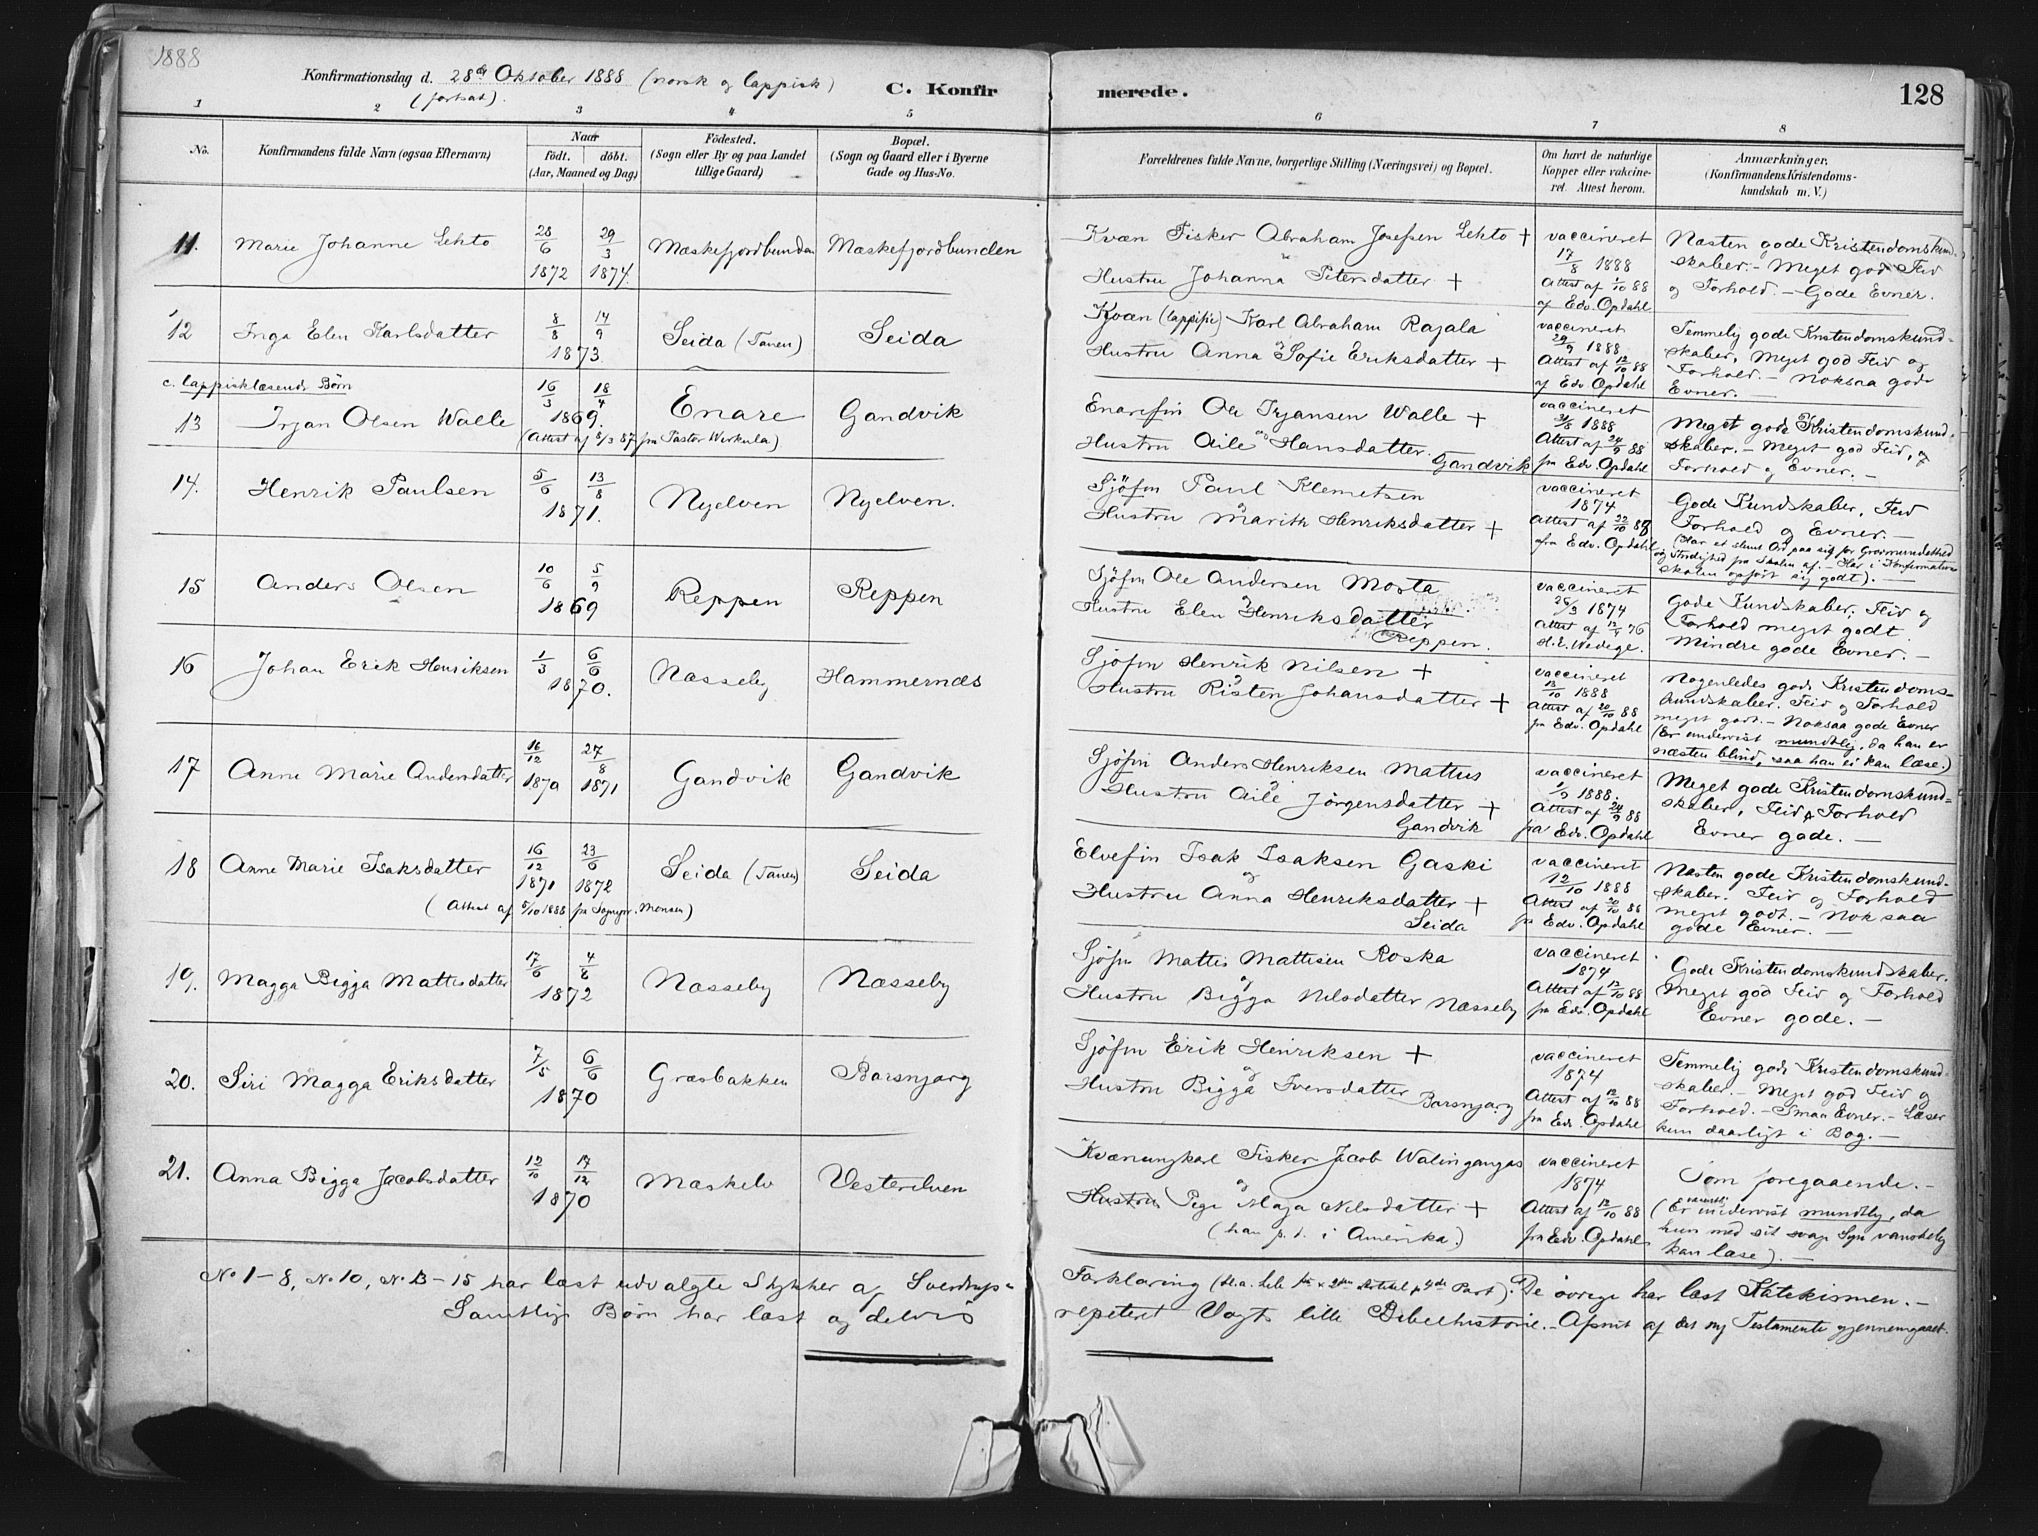 1888
Konfirmationsdag d. 28de Oktober 1888 (norsk og lappisk)
(fortsat).
C. Konfirmerede.
128
1 2 3 4 5 6 7 8
No.
Konfirmandens fulde Navn (ogsaa Efternavn)
Naar
födt. döbt.
(Aar, Maaned og Dag)
Födested.
(Sogn eller By og paa Landet
tillige Gaard)
Bopæl.
(Sogn og Gaard eller i Byerne
Gade og Hus-No.
Forældrenes fulde Navne, borgerlige Stilling (Næringsvei) og Bopæl.
Om havt de naturlige
Kopper eller vakcine-
ret. Attest herom.
Anmærkninger.
(Konfirmandens Kristendoms-
kundskab m. V.)
11. Marie Johanne Lehto
28/6 1872 29/3 1874.
Mæskefjordbunden Mæskefjordbunden
Kvæn Fisker Abraham Josefsen Lehto +
Hustru Johanna Petersdatter +
vaccineret
17/8 1888
Attest af 2/10 88
af Edv. Opdahl
Næsten gode Kristendomskund-
skaber. - Meget god Flid
og Forhold. - Gode Evner.
12 Inga Elen Karlsdatter
8/8 14/9 1873
Seida (Tanen) Seida
Kvæn (lappisk) Karl Abraham Rajala
og
Hustru Anna Sofie Eriksdatter +
vaccineret
29/9 1888
Attest af 12/10 88
af Edv. Opdahl
Temmelig gode Kristendomskund-
skaber, Meget god Flid og
Forhold. - Noksaa gode
Evner. -
c. lappisklæsende Börn
13 Irjan Olsen Walle
16/3 18/4 1869.
(Attest af 8/3 87 fra Pastor Wirkula)
Enare Gandvik
Enarefin Ole Irjansen Walle +
og
Hustru Aile Hansdatter. Gandvik
vaccineret
31/8 1888
Attest af 24/9 88
fra Edv. Opdahl
Meget gode Kristendomskund-
skaber. - Meget god Flid, og
Forhold og Evner. -
14. Henrik Paulsen
5/6 13/8 1871.
Nyelven Nyelven.
Sjöfin Paul Klemetsen
og
Hustru Marith Henriksdatter +
vaccineret
1874
Attest af 22/10 88
fra Edv. Opdahl
Gode Kundskaber, Flid
Forhold og Evner. -
(Har et slemt Ord paa sig for Grovmundethed
og Stridighed fra Skolen af. - Har i Konfirmations
skolen opfört sig godt). -
15 Anders Olsen
10/6 5/9 1869
Reppen Reppen
Sjöfin Ole Andersen Mosta
og
Hustru Elen Henriksdatter
Reppen.
vaccineret
26/3 1874
Attest af 12/8 76
H. E. Wedege.
Gode Kundskaber, Flid og
Forhold meget godt.
Mindre gode Evner. -
16 Johan Erik Henriksen
1/3 6/6 1870.
Næsseby Hammernæs
Sjöfin Henrik Nilsen +
og
Hustru Risten Johansdatter +
vaccineret
13/10 1888
Attest af 20/10 88
fra Edv. Opdahl
Nogenledes gode Kristendoms-
kundskaber. Flid og Forhold
meget godt. - Noksaa gode Evner
(Er undervist mundtlig, da han er
næsten blind, saa han ei kan læse.)
17 Anne Marie Andersdatter
16/12 1870 27/8 1871
Gandvik Gandvik
Sjöfin Anders Henriksen Mattus
og
Hustru Aile Jörgensdatter +
Gandvik
vaccineret
1/9 1888.
Attest af 24/9 88
fra Edv. Opdahl
Meget gode Kristendomskund-
skaber, Flid & Forhold
Evner gode. -
18 Anne Marie Isaksdatter
16/12 1871 23/6 1872
(Attest af 5/10 1888 fra Sognepr. Monsen)
Seida (Tanen) Seida
Elvefin Isak Isaksen Gaski
og
Hustru Anna Henriksdatter +
Seida
vaccineret
12/10 1888
Attest af 20/10 88
fra Edv. Opdahl
Næsten gode Kristendomskund-
skaber. Flid og Forhold
meget godt. - Noksaa
gode Evner. -
19. Magga Bigga Mattisdatter
17/6 4/8 1872
Næsseby Næsseby
Sjöfin Mattis Mattisen Roska
og
Hustru Bigga Nilsdatter Næsseby
vaccineret
1874
Attest af 12/10 88
fra Edv. Opdahl
Gode Kristendomskundskaber.
Meget god Flid og Forhold
Evner gode. -
20. Siri Magga Eriksdatter
7/5 6/6 1870
Græsbakken Barsnjarg
Sjöfin Erik Henriksen +
og
Hustru Bigga Iversdatter Barsnjarg
vaccineret
1874
Attest af 12/10 88
fra Edv. Opdahl
Temmelig gode Kristendomskund-
skaber. - Meget god Flid og
Forhold. - Smaa Evner. - Læser
kun daarligt i Bog. -
21. Anna Bigga Jacobsdatter
12/10 17/12 1870
Mæskelv Vesterelven
Kvænungkarl Fisker Jacob Walingangas
og
Hustru Pige Maja Nilsdatter +
(han p. t. i Amerika.)
vaccineret
1874
Attest af 12/10 88
fra Edv. Opdahl
Som foregaaende. -
(Er undervist mundtlig, da
hun med sit svage Syn vanskelig
kan læse). -
No 1-8, No 10, No 13-15 har læst udvalgte Stykker af Sverdrups Forklaring (bl. a. hele 1ste & 2den Artikel & 4de Part). De övrige har læst Katekismen. -
Samtlige Börn har læst og delvis repeteret Vogts lille Bibelhistorie. - Afsnit af det ny Testamente gjennemgaaet.